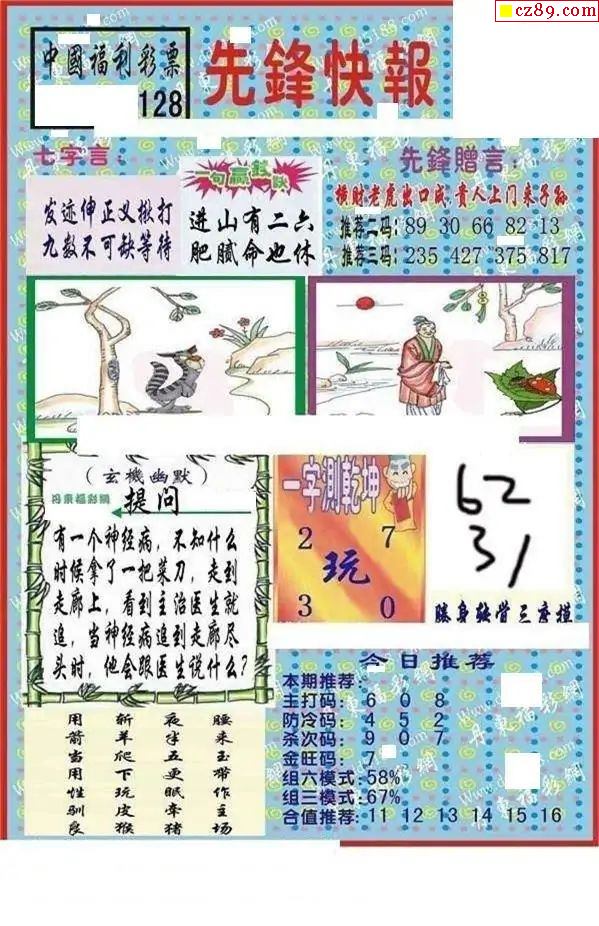 cz89.com
中國福利彩票
128
先鋒快報
七字言：
发迹伸正义揪打
九数不可缺等待
一句赢钱诀
进山有二六
肥腻命也休
先鋒贈言：
横财老虎出口成,贵人上门来子孙
推荐二码：89 30 66 82 13
推荐三码：235 427 375 817
（玄機幽默）
丹東福彩網
提问
有一个神经病，不知什么
时候拿了一把菜刀，走到
走廊上，看到主治医生就
追，当神经病追到走廊尽
头时，他会跟医生说什么？
一字测乾坤
2 7
玩
3 0
62
31
用箭当用性驯良
斩羊爬下玩皮猴
夜半五更眠牵猪
腰来玉带作主场
今日推荐
本期推荐：
主打码： 6 0 8
防冷码： 4 5 2
杀次码： 9 0 7
金旺码： 7
组六模式：58%
组三模式：67%
合值推荐：11 12 13 14 15 16